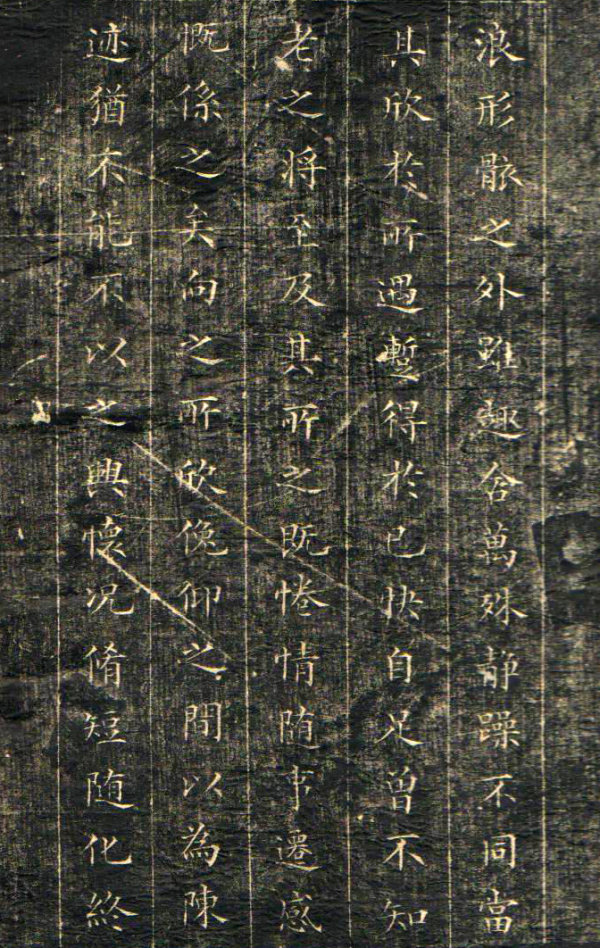 浪形骸之外雖趣舍萬殊靜躁不同當
其欣於所遇蹔得於己快自足曾不知
老之將至及其所之既惓情随事遷感
慨係之矣向之所欣俛仰之間以為陳
迹猶不能不以之興懷况脩短随化終